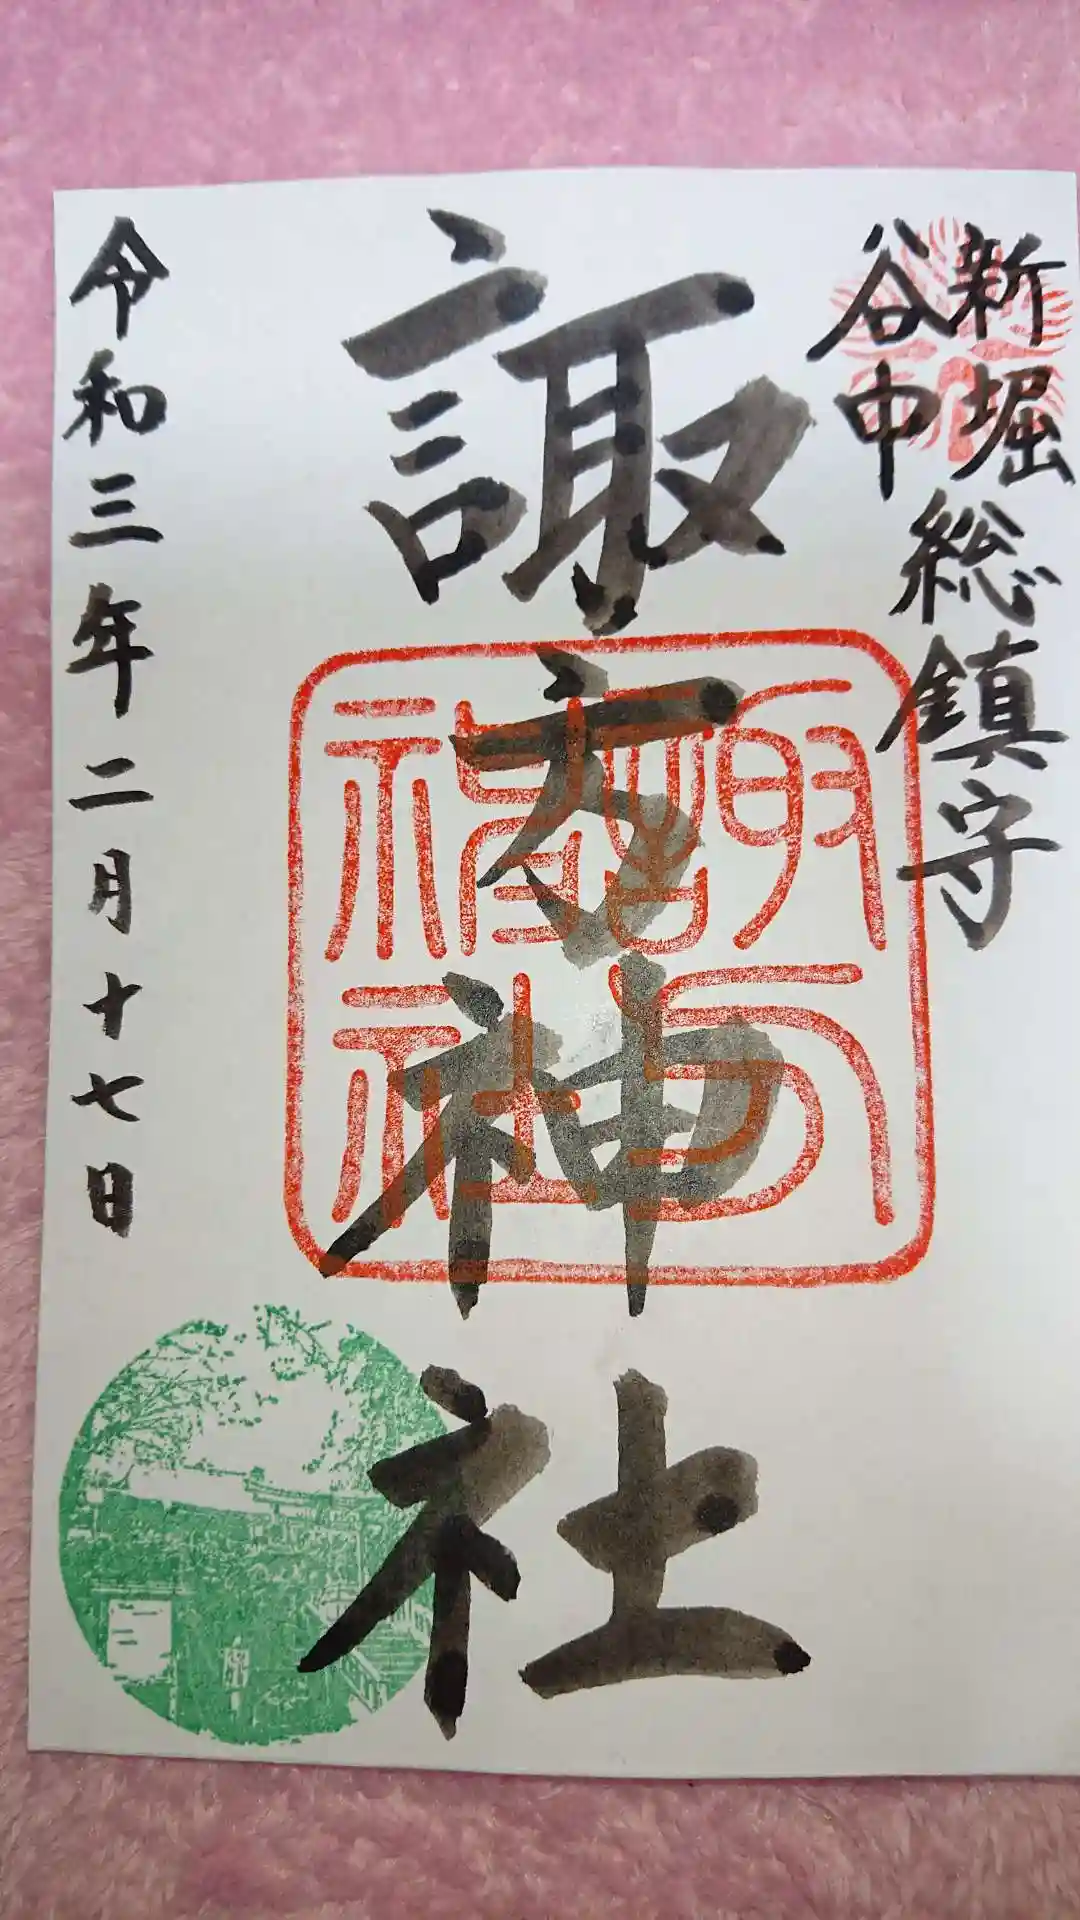 新堀
谷中
総鎮守
諏方神社
諏方神社
令和三年二月十七日